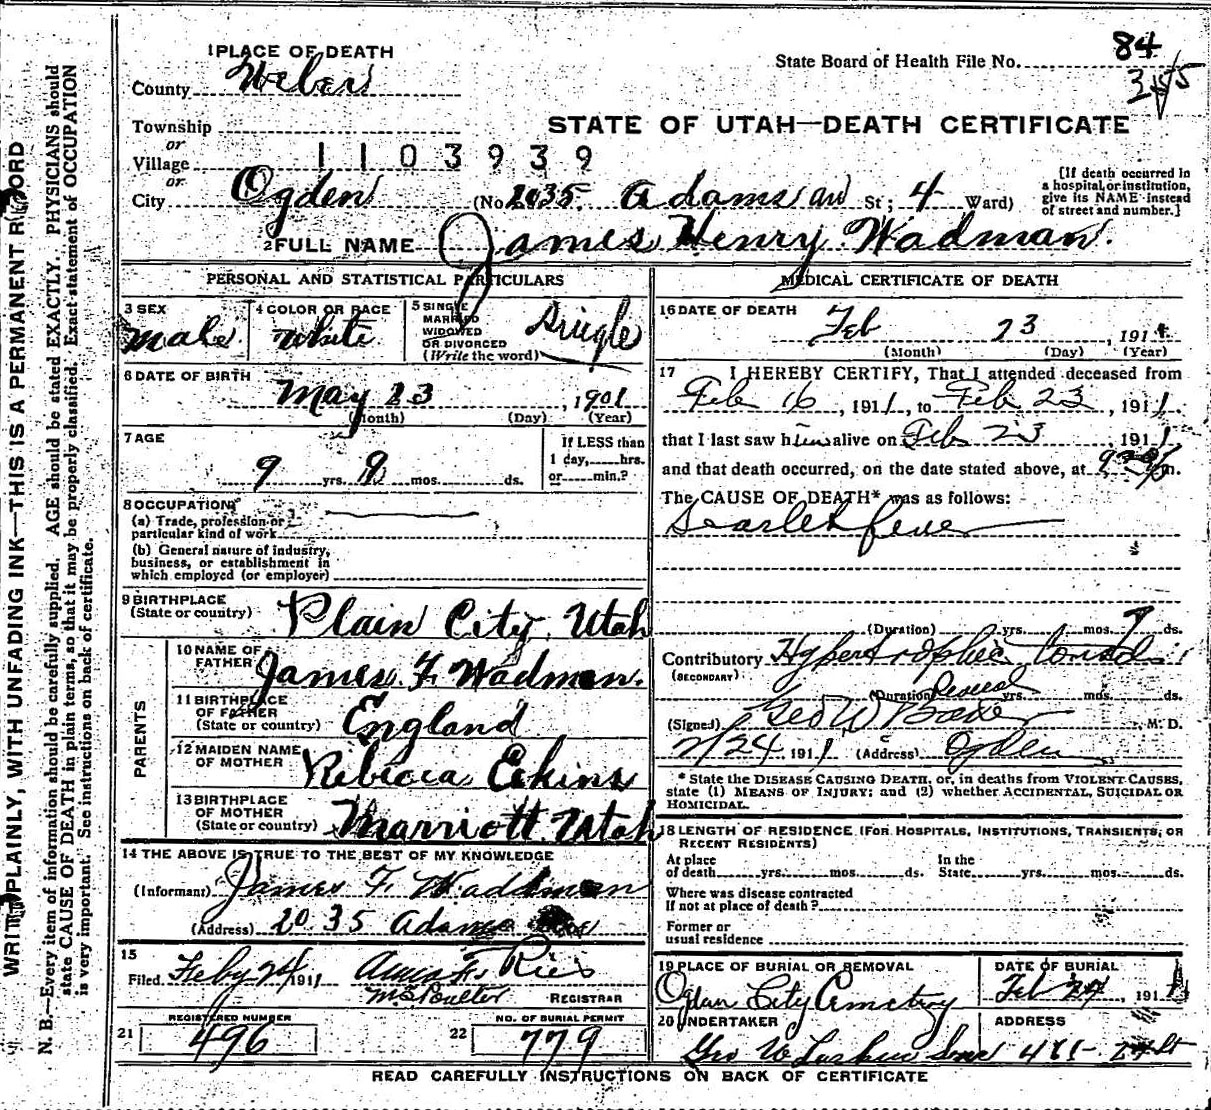 WRITE PLAINLY, WITH UNFADING INK—THIS IS A PERMANENT RECORD
N. B.—Every item of information should be carefully supplied. AGE should be stated EXACTLY. PHYSICIANS should
state CAUSE OF DEATH in plain terms, so that it may be properly classified. Exact statement of OCCUPATION
is very important. See instructions on back of certificate.
1 PLACE OF DEATH
County Weber
Township
or
Village
1103939
or
City Ogden (No. 2035 Adams av St; 4 Ward)
State Board of Health File No. 84
STATE OF UTAH—DEATH CERTIFICATE
[If death occurred in
a hospital or institution,
give its NAME instead
of street and number.]
2 FULL NAME James Henry Wadman.
PERSONAL AND STATISTICAL PARTICULARS
3 SEX
male
4 COLOR OR RACE
White
5 SINGLE
MARRIED
WIDOWED
OR DIVORCED
(Write the word)
Single
6 DATE OF BIRTH
May 23, 1901
(Month) (Day) (Year)
7 AGE
9 yrs. 9 mos. ds.
If LESS than
1 day, hrs.
or min.?
8 OCCUPATION
(a) Trade, profession or
particular kind of work
(b) General nature of industry,
business, or establishment in
which employed (or employer)
9 BIRTHPLACE
(State or country) Plain City, Utah
PARENTS
10 NAME OF
FATHER James F. Wadman.
11 BIRTHPLACE
OF FATHER
(State or country) England
12 MAIDEN NAME
OF MOTHER Rebicca Ekins
13 BIRTHPLACE
OF MOTHER
(State or country) Marriott, Utah
14 THE ABOVE IS TRUE TO THE BEST OF MY KNOWLEDGE
(Informant) James F. Wadman
(Address) 2035 Adams Ave
15
Filed Feby 24 1911 F. Ries
REGISTRAR
21 REGISTERED NUMBER
496
22 NO. OF BURIAL PERMIT
779
MEDICAL CERTIFICATE OF DEATH
16 DATE OF DEATH
Feb 23, 1911
(Month) (Day) (Year)
17 I HEREBY CERTIFY, That I attended deceased from
Feb 16, 1911, to Feb 23, 1911
that I last saw him alive on Feb 23 1911
and that death occurred, on the date stated above, at m.
The CAUSE OF DEATH* was as follows:
Scarlet fever
(Duration) yrs. mos. 7 ds.
Contributory
(SECONDARY)
(Duration) several yrs. mos. ds.
(Signed) Geo W Baker M. D.
2/24 1911 (Address) Ogden
* State the DISEASE CAUSING DEATH, or, in deaths from VIOLENT CAUSES,
state (1) MEANS OF INJURY; and (2) whether ACCIDENTAL, SUICIDAL OR
HOMICIDAL.
18 LENGTH OF RESIDENCE (FOR HOSPITALS, INSTITUTIONS, TRANSIENTS, OR
RECENT RESIDENTS)
At place
of death yrs. mos. ds.
In the
State yrs. mos. ds.
Where was disease contracted
If not at place of death?
Former or
usual residence
19 PLACE OF BURIAL OR REMOVAL
Ogden City Cemetery
DATE OF BURIAL
Feb 24, 1911
20 UNDERTAKER
Geo W Larkin Sons
ADDRESS
READ CAREFULLY INSTRUCTIONS ON BACK OF CERTIFICATE